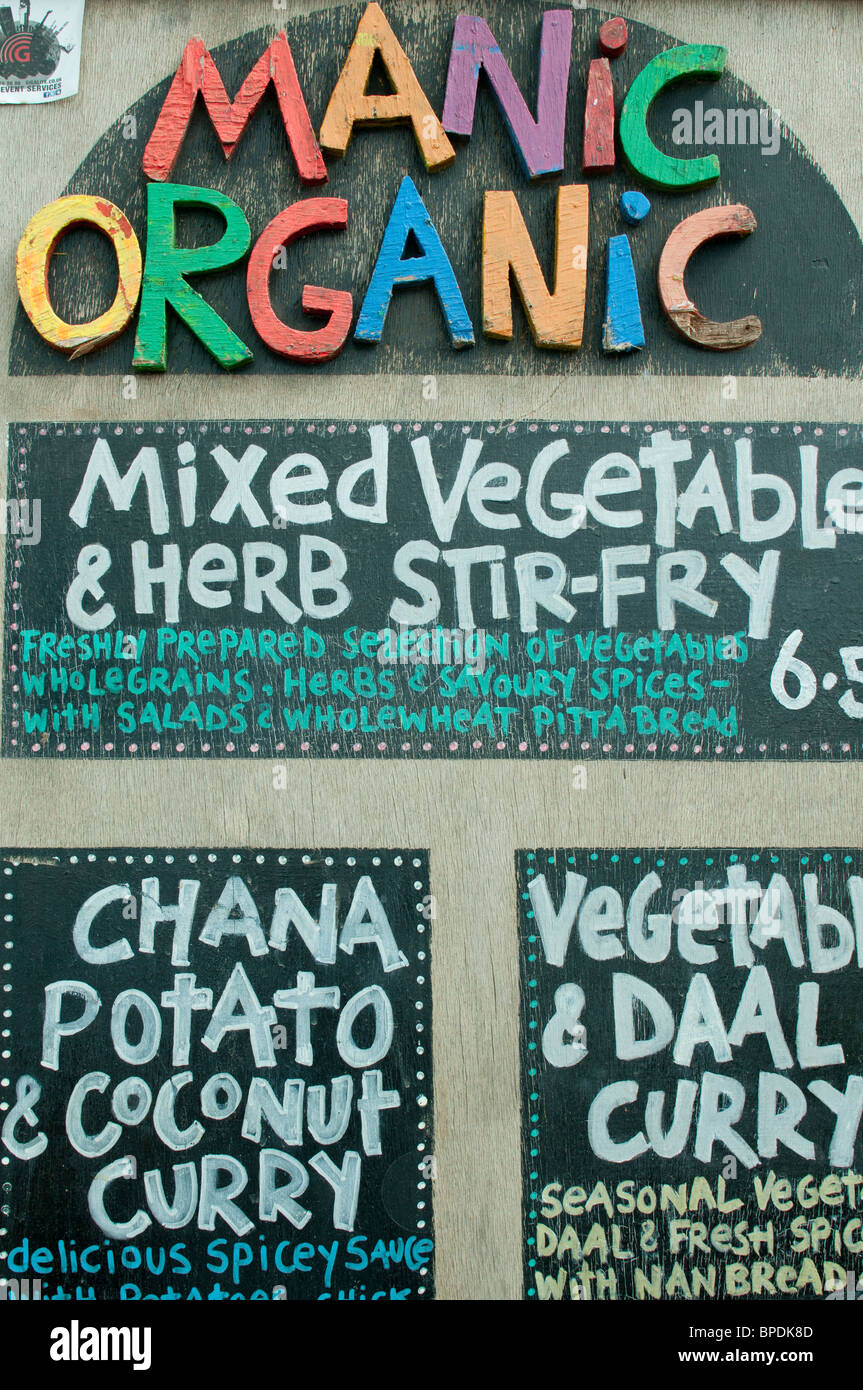 EVENT SERVICES
MANiC
ORGANiC
Mixed VegeTable
& HerB STiR-FRY
FRESHLY PREPARED Selection of Vegetables
WHOLEGRAINS, HERBS & SAVOURY SPiCES-
with SALADS & WHOLEWHEAT PITTA BREAD
6.5
CHANA
POTATO
& COCONUT
CURRY
delicious Spicey Sauce
With Potatoes
VegeTabl
& DAAL
CURRY
SeASONAL VegeT
DAAL & FResh Spic
With NAN BREAD &
alamy
Image ID: BPDK8D
www.alamy.com